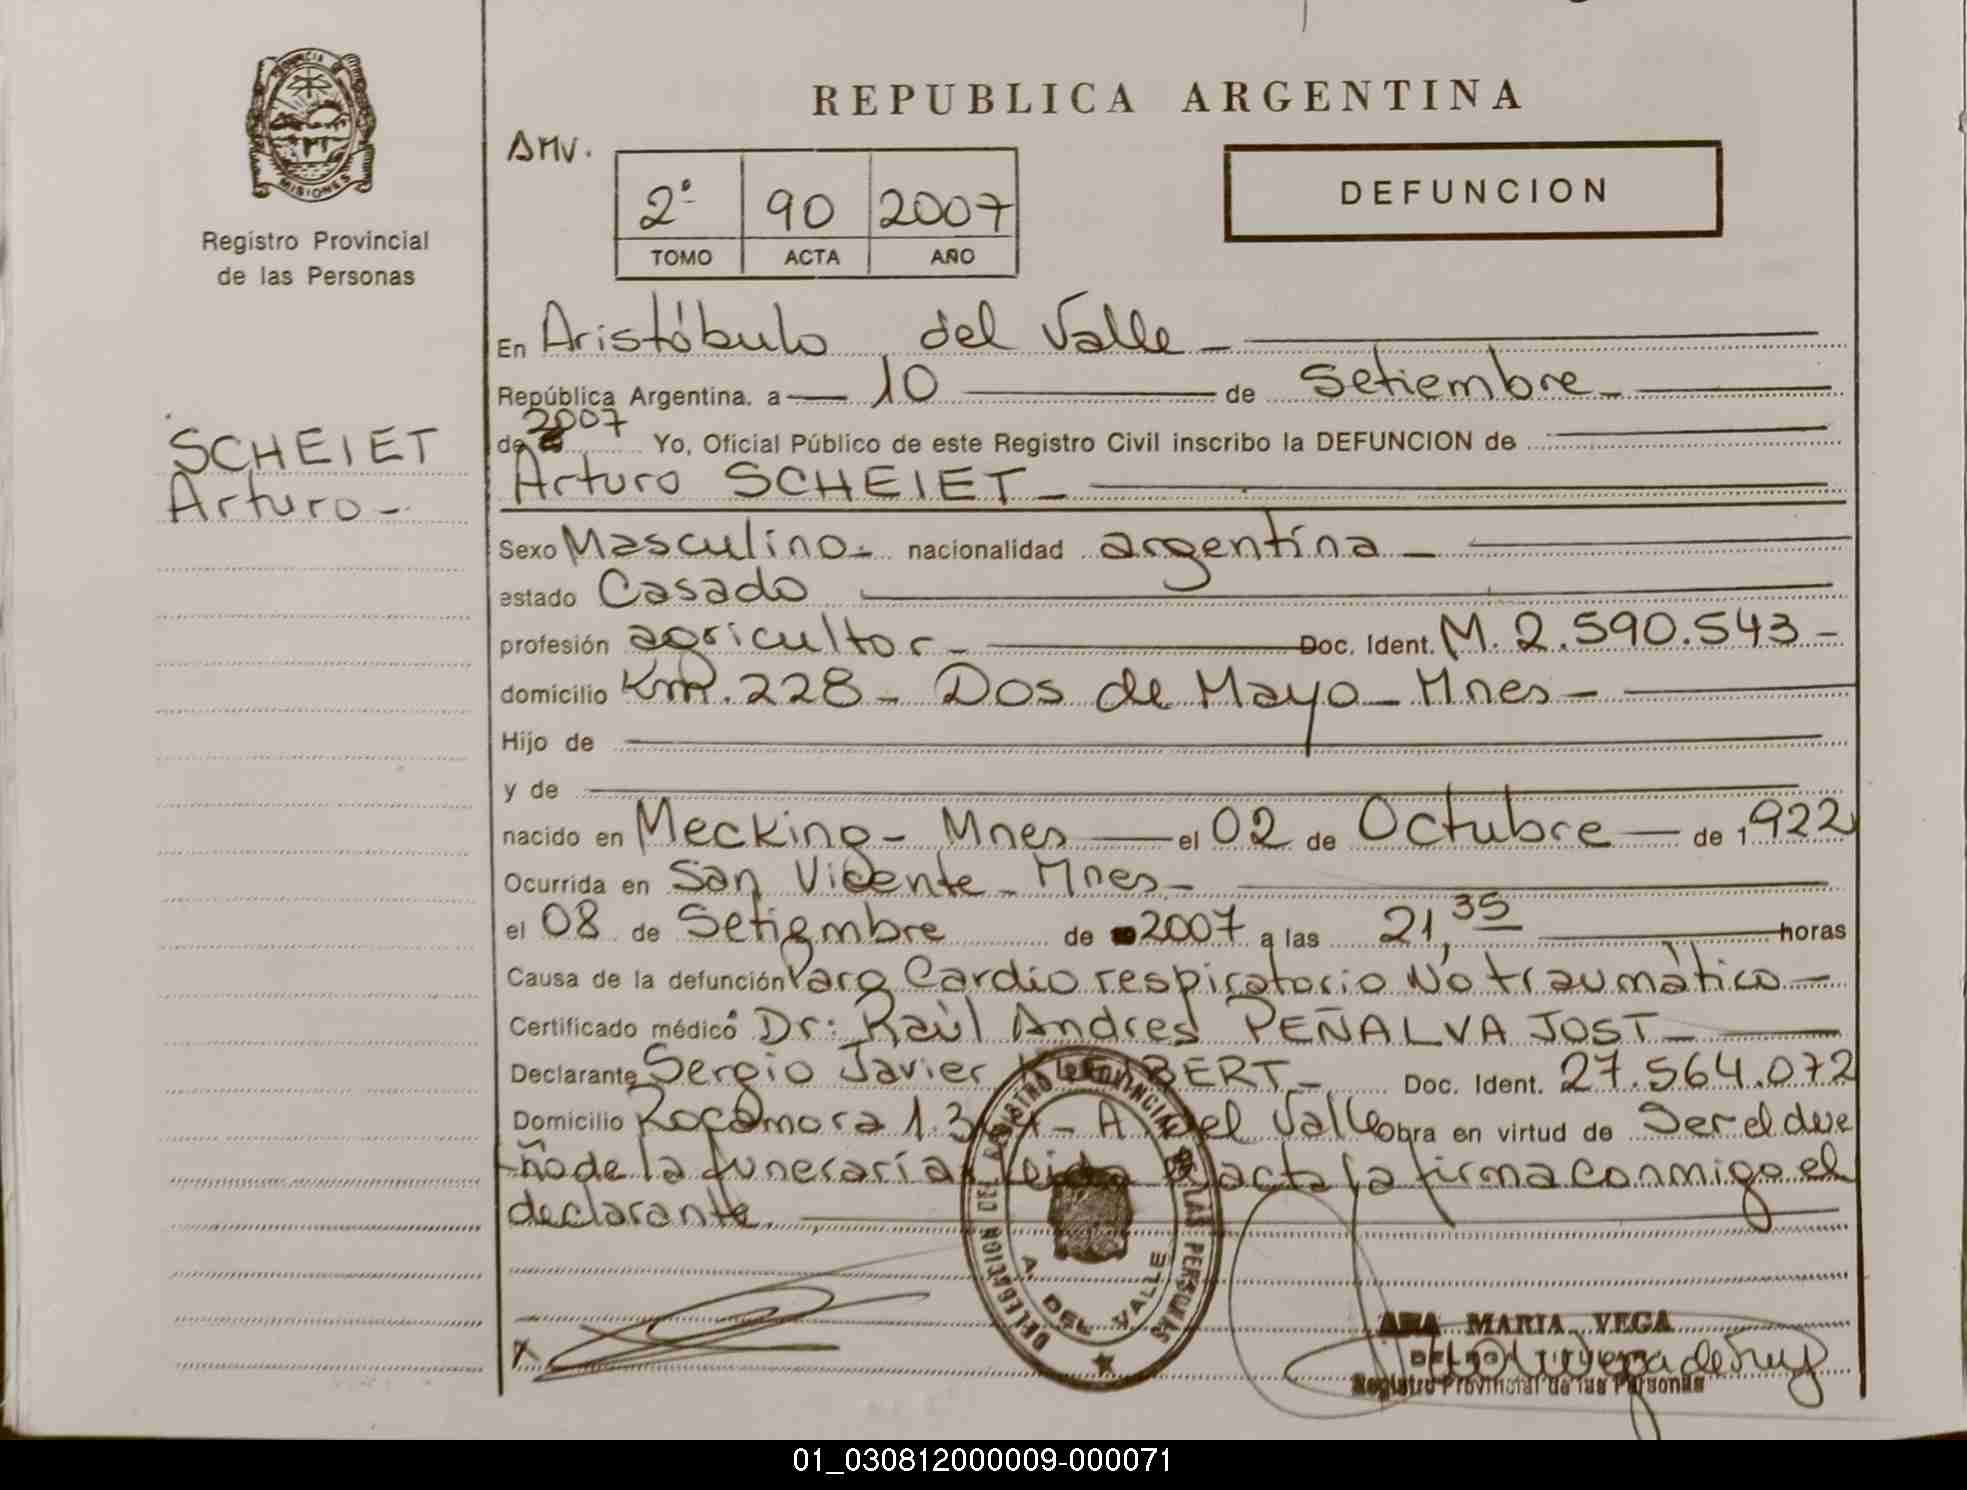 PROVINCIA
MISIONES
Registro Provincial
de las Personas
SCHEIET
Arturo -
REPUBLICA ARGENTINA
AMV.
2º 90 2007
TOMO ACTA AÑO
DEFUNCION
En Aristóbulo del Valle -
República Argentina, a 10 de Setiembre -
de 2007 Yo, Oficial Público de este Registro Civil inscribo la DEFUNCION de
Arturo SCHEIET -
Sexo Masculino - nacionalidad argentina -
estado Casado
profesión agricultor - Doc. Ident. M. 2.590.543 -
domicilio Km. 228 - Dos de Mayo - Mnes -
Hijo de
y de
nacido en Mecking - Mnes - el 02 de Octubre - de 1922
Ocurrida en San Vicente - Mnes -
el 08 de Setiembre de 2007 a las 21,35 horas
Causa de la defunción Paro Cardio respiratorio No traumàtico -
Certificado médico Dr: Raùl Andres PEÑALVA JOST -
Declarante Sergio Javier Doc. Ident. 27.564.072
Domicilio Rocamora - A. del Valle obra en virtud de Ser el due
ño de la funeraria leida el acta la firma conmigo el
declarante.
REGISTRO PROVINCIAL DE LAS PERSONAS
DELEGACION DEL
A. DEL VALLE
X
ANA MARIA VEGA
Registro Provincial de las Personas
01_030812000009-000071